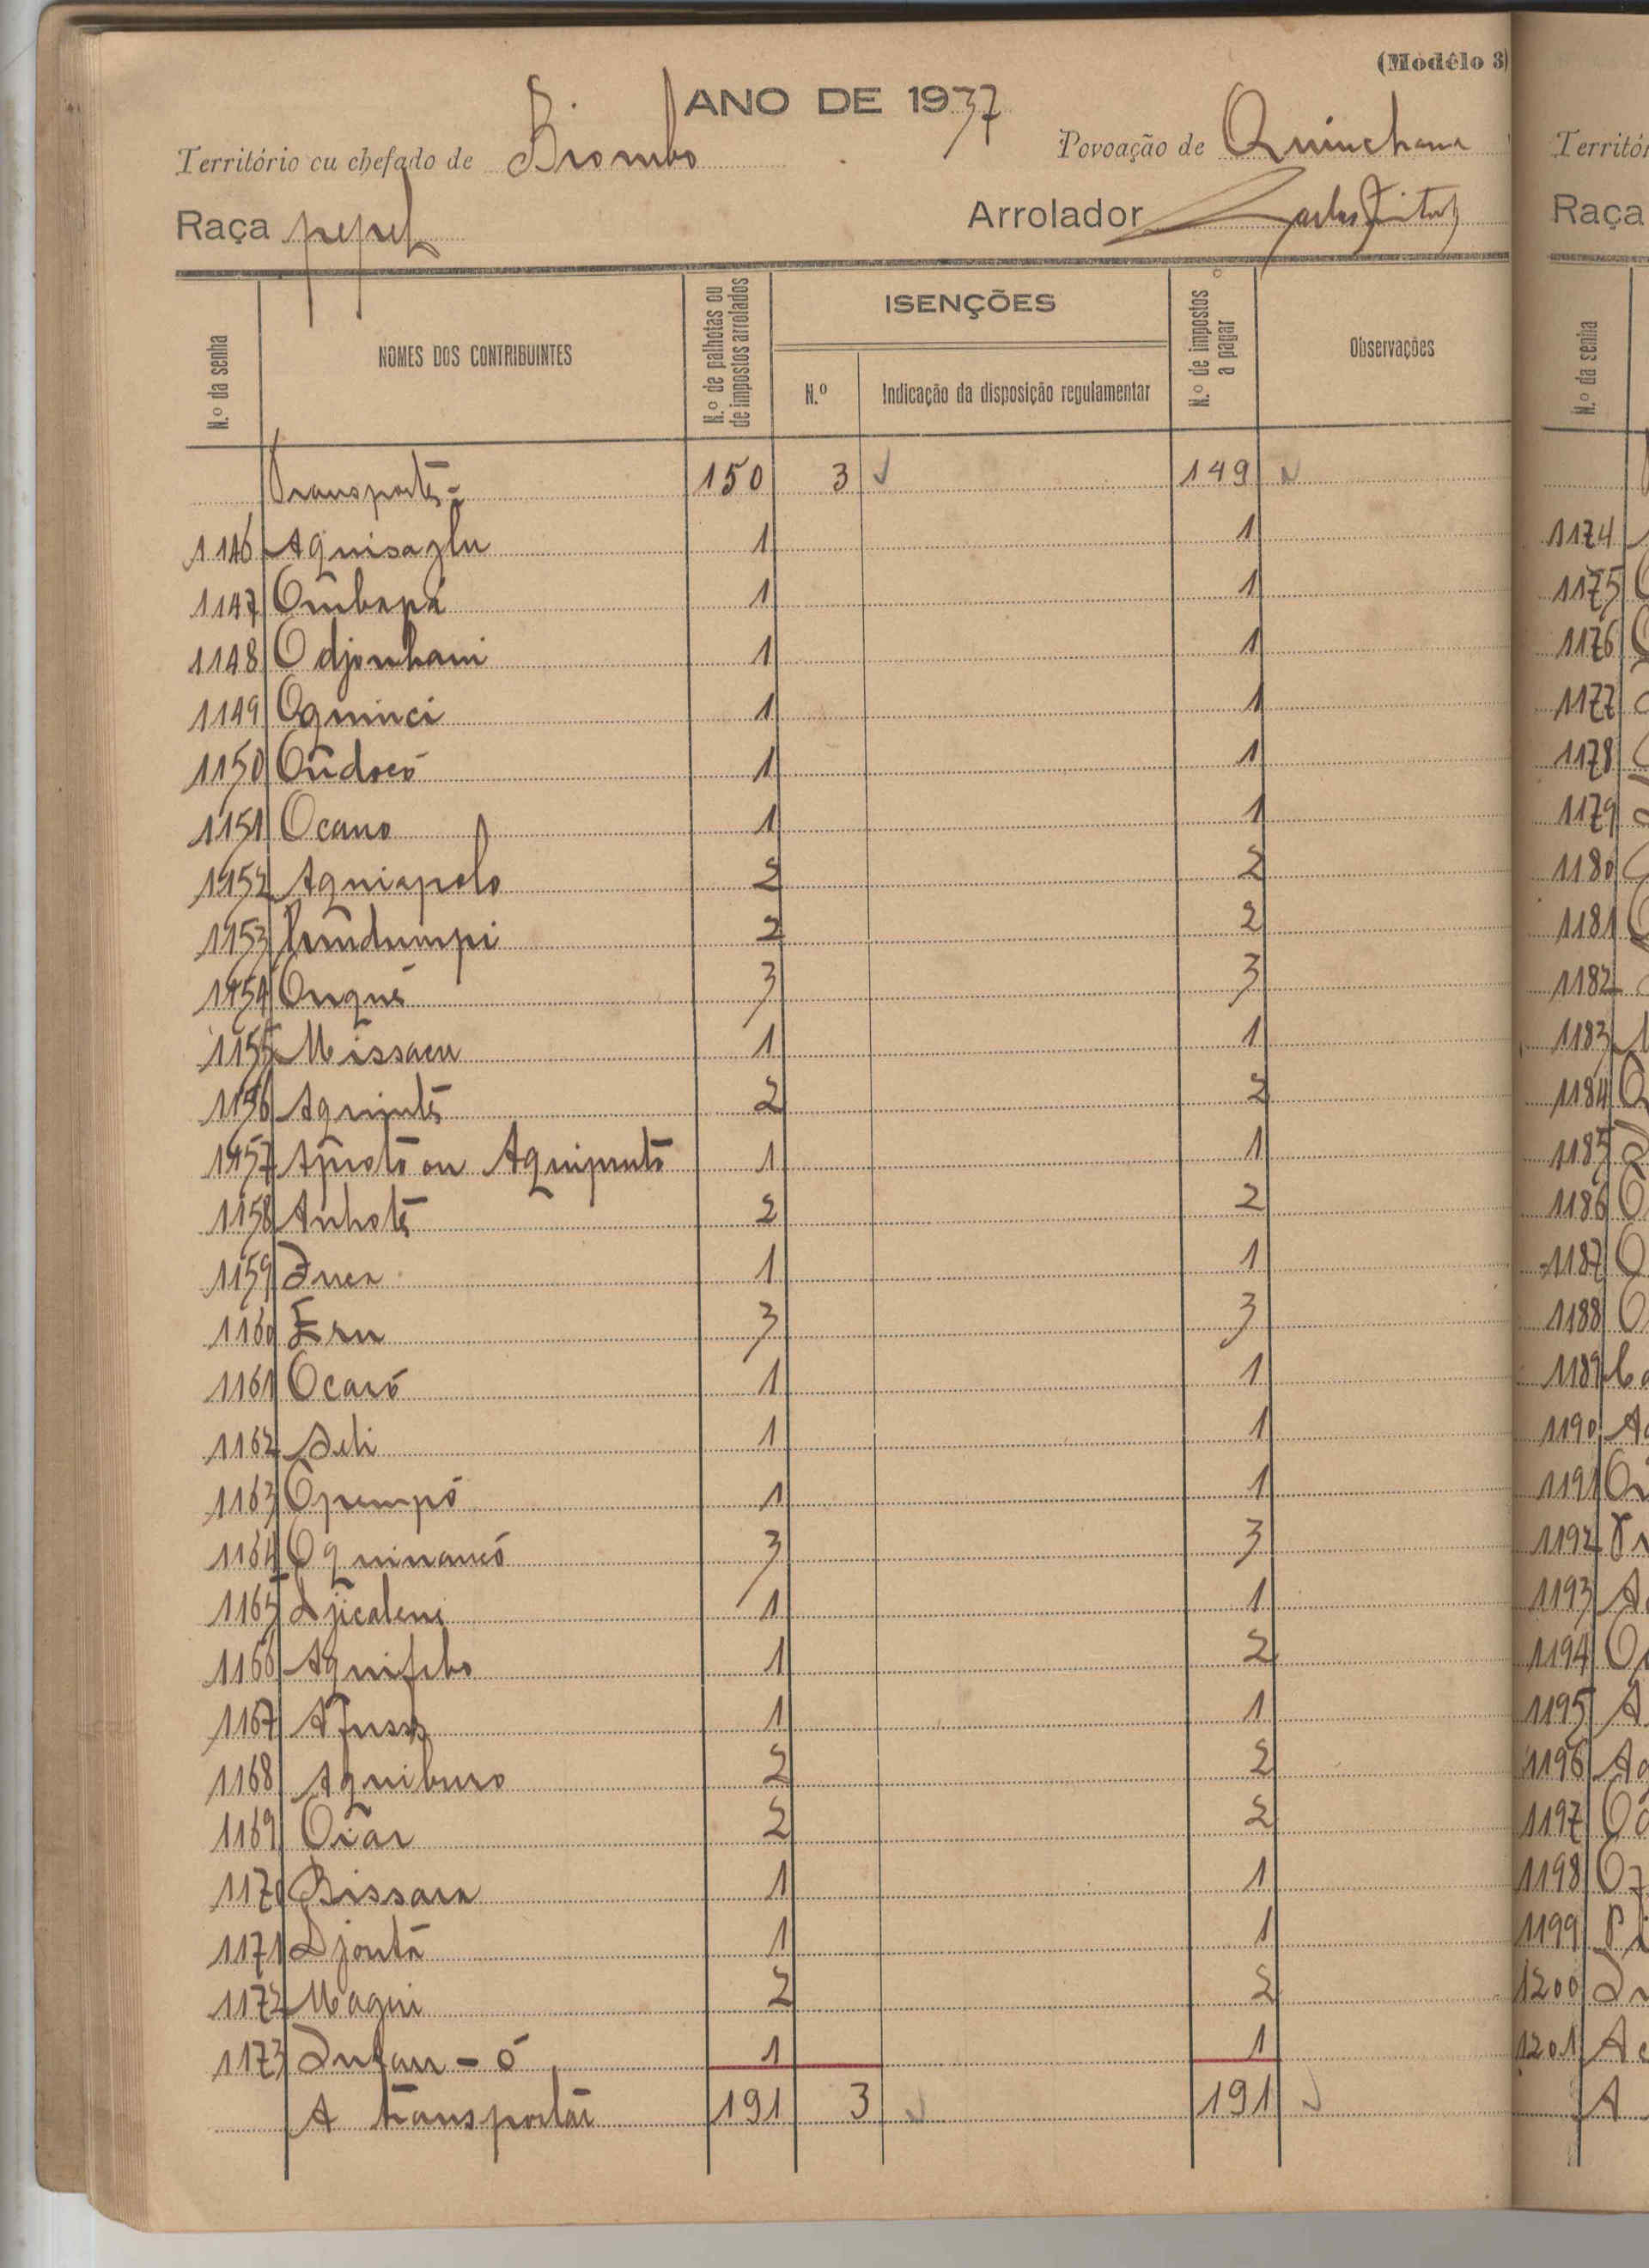 (Modêlo 3)
ANO DE 1937
Território ou chefado de Biombo Povoação de Quinchana
Raça pepel Arrolador Carlos
N.º da senha NOMES DOS CONTRIBUINTES N.º de palhotas ou de impostos arrolados ISENÇÕES N.º Indicação da disposição regulamentar N.º de impostos a pagar Observações
Transporte 150 3 149
1146 1 1
1147 1 1
1148 Odjonhani 1 1
1149 Oquinci 1 1
1150 1 1
1151 Ocano 1 1
1152 Aquiapolo 2 2
1153 2 2
1154 Onqué 3 3
1155 Missaeu 1 1
1156 Aquinté 2 2
1157 ou 1 1
1158 Anhoté 2 2
1159 1 1
1160 Eru 3 3
1161 Ocaró 1 1
1162 1 1
1163 Opempó 1 1
1164 Oquinancó 3 3
1165 Djicaleni 1 1
1166 1 2
1167 1 1
1168 Aquiburo 2 2
1169 2 2
1170 Bissara 1 1
1171 Djontá 1 1
1172 Maqui 2 2
1173 1 1
A transportar 191 3 191
Territór
Raça
N.º da senha
1174
1175
1176
1177
1178
1179
1180
1181
1182
1183
1184
1185
1186
1187
1188
1189
1190
1191
1192
1193
1194
1195
1196
1197
1198
1199
1200
1201
A